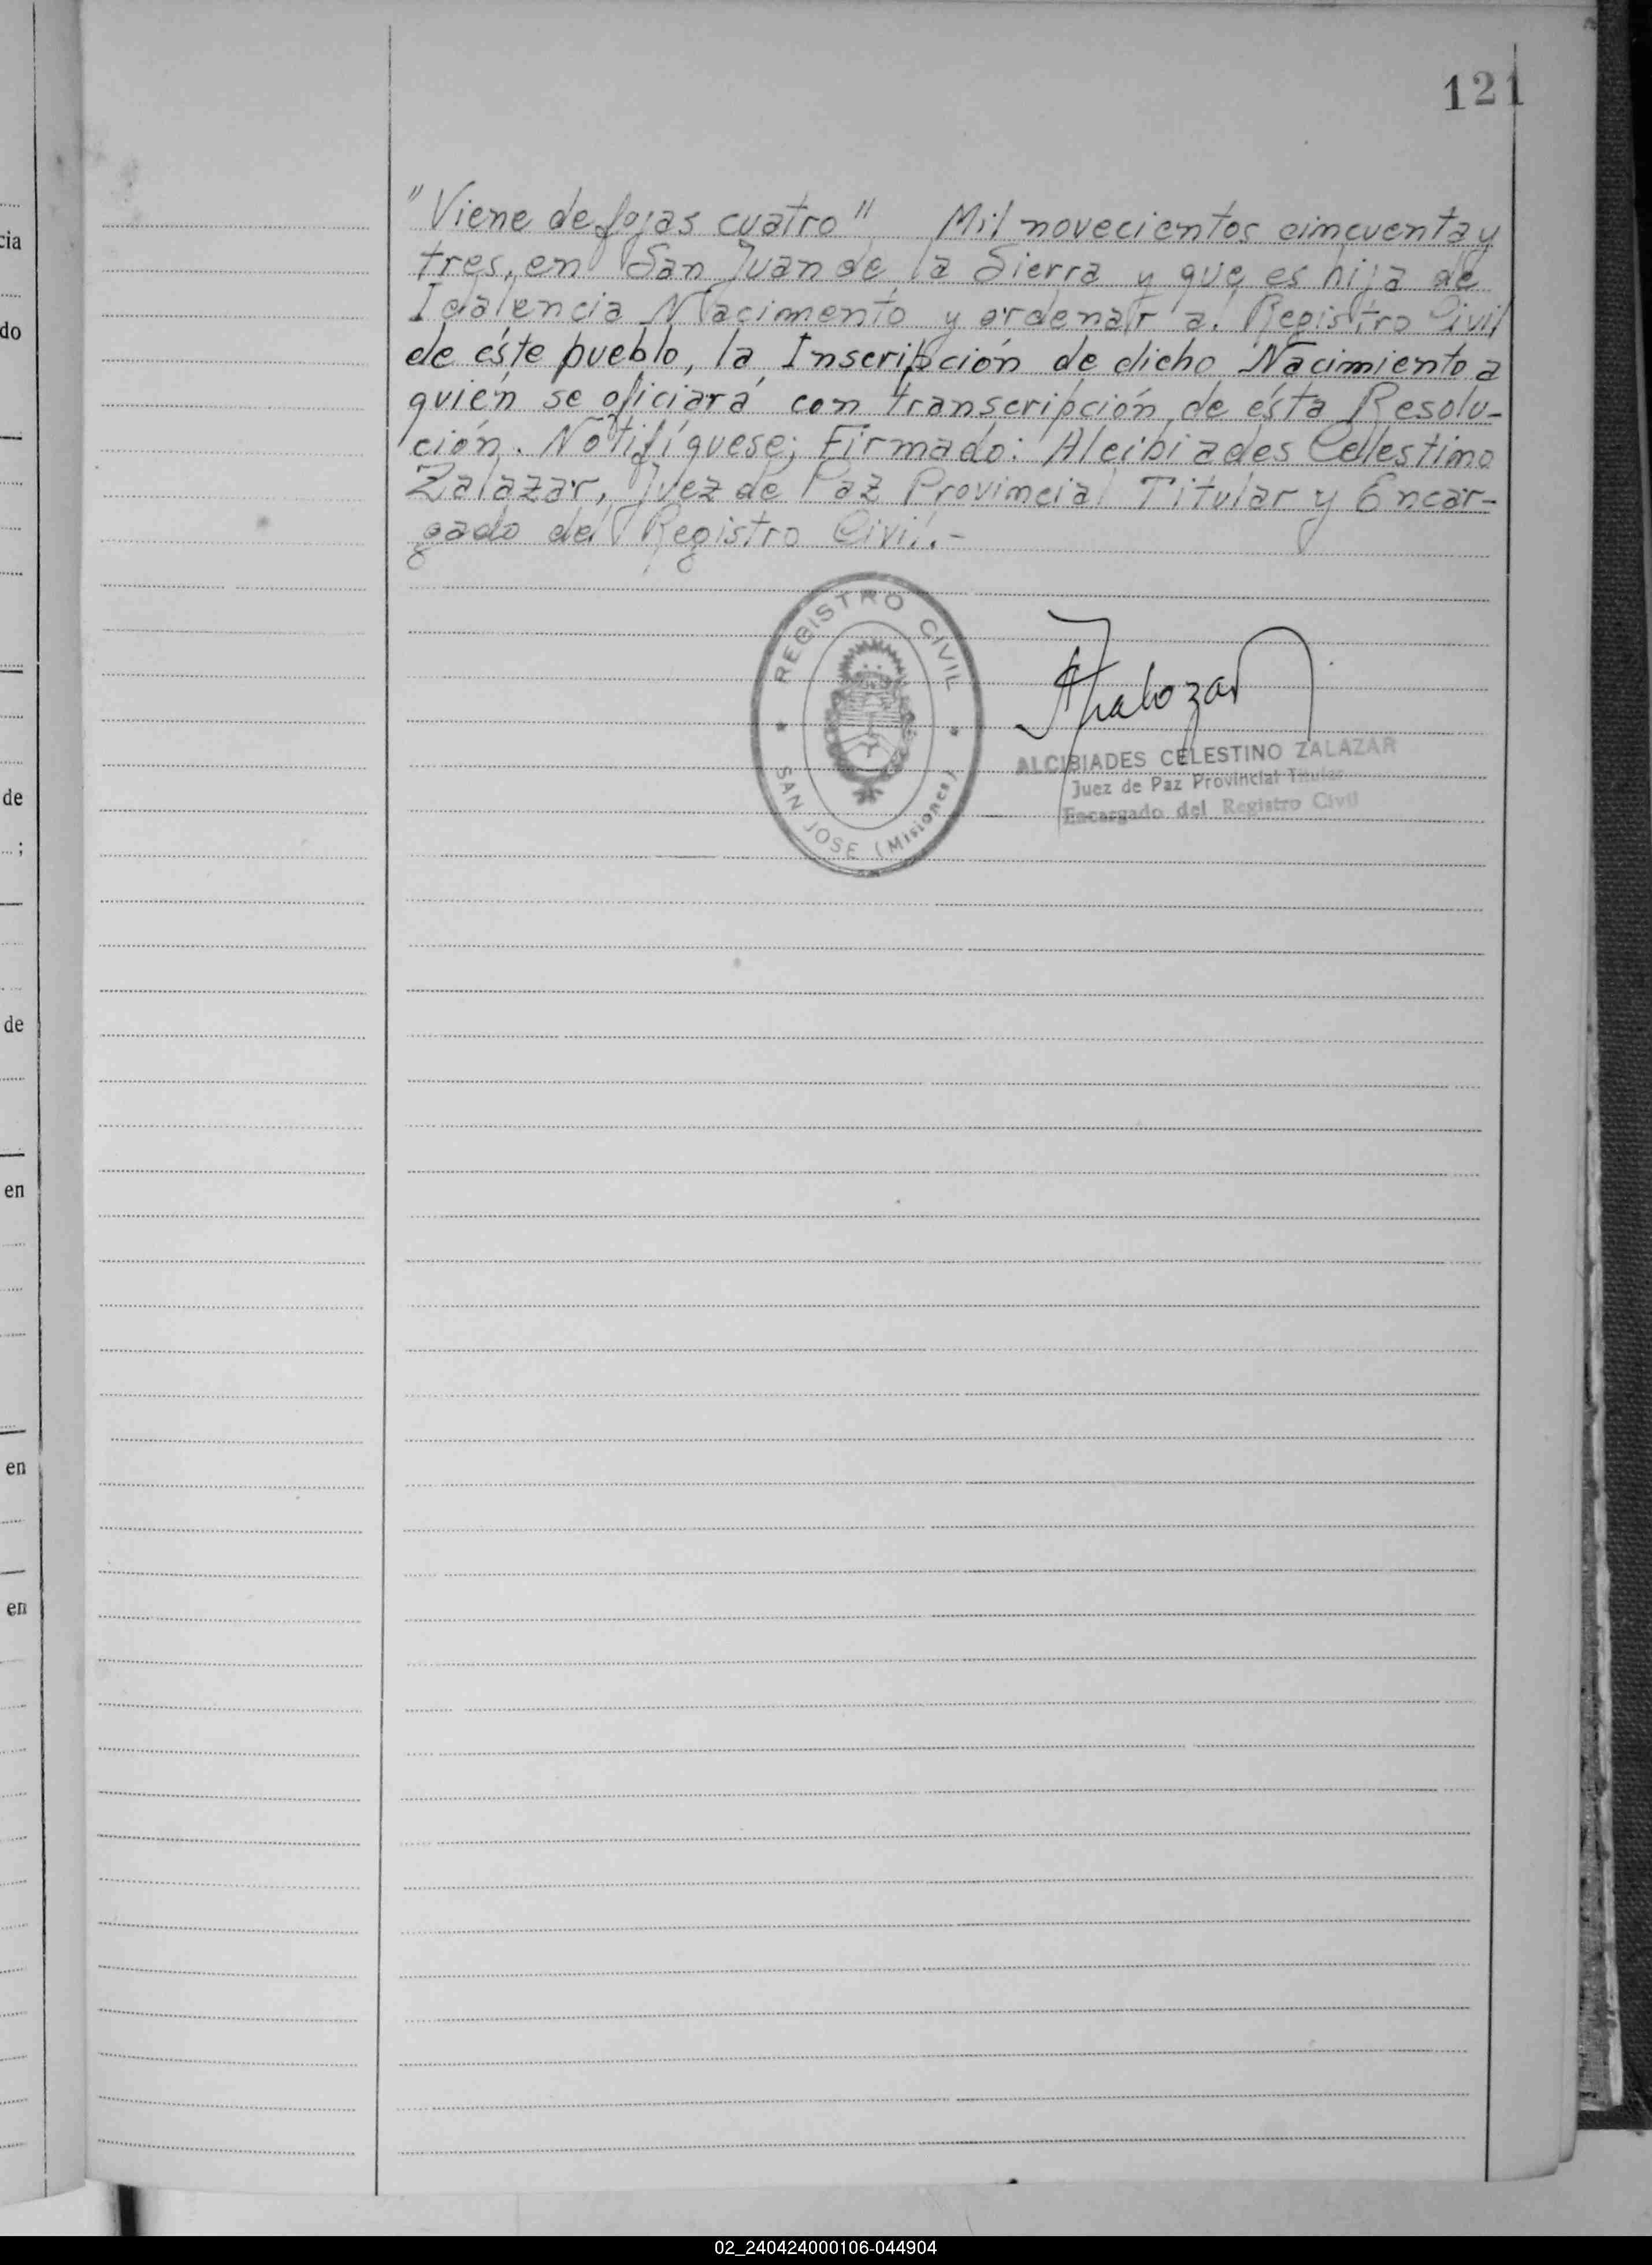 121
"Viene de fojas cuatro" Mil novecientos cincuenta y
tres, en San Juan de la Sierra y que es hija de
Idalencia Nacimento y ordenar al Registro Civil
de éste pueblo, la Inscripción de dicho Nacimiento a
quién se oficiará con transcripción de ésta Resolu-
ción. Notifíquese; Firmado: Alcibiades Celestino
Zalazar, Juez de Paz Provincial Titular y Encar-
gado del Registro Civil.-
REGISTRO CIVIL
SAN JOSE (Misiones)
ALCIBIADES CELESTINO ZALAZAR
Juez de Paz Provincial Titular
Encargado del Registro Civil
cia
do
de
;
de
en
en
en
02_240424000106-044904